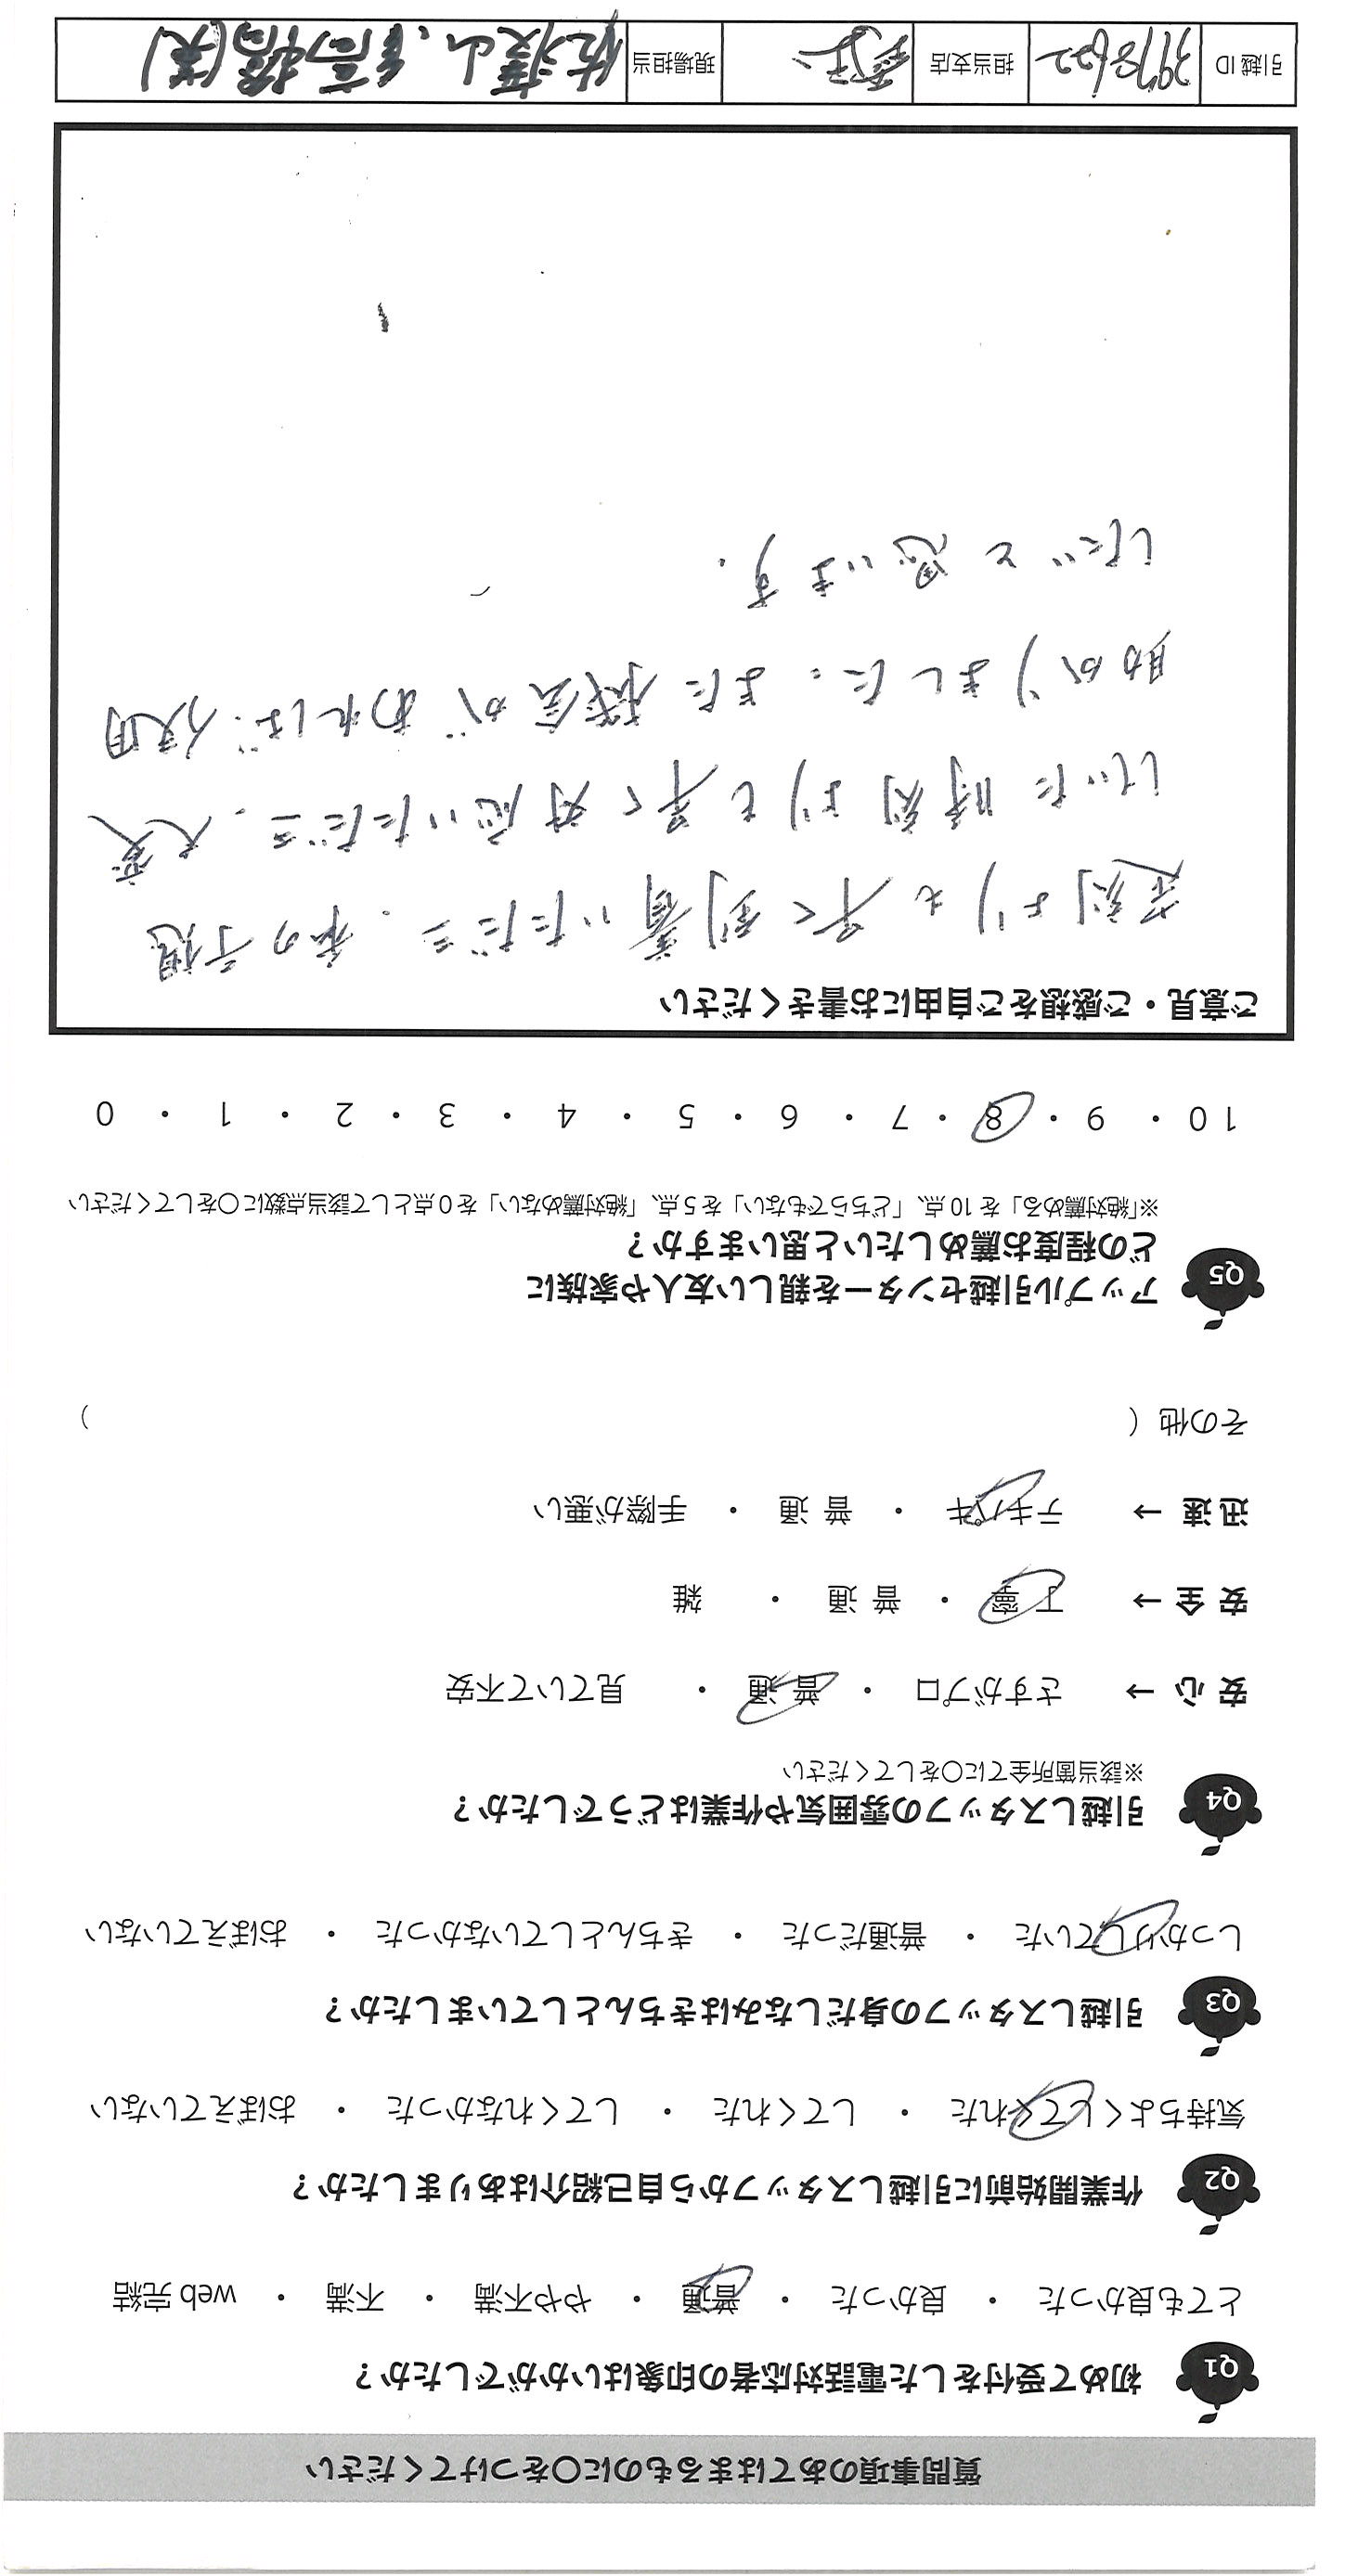 質問事項のあてはまるものに○をつけてください
Q1 初めて受付をした電話対応者の印象はいかがでしたか？
とても良かった ・ 良かった ・ 普通 ・ やや不満 ・ 不満 ・ web 完結
Q2 作業開始前に引越しスタッフから自己紹介はありましたか？
気持ちよくしてくれた ・ してくれた ・ してくれなかった ・ おぼえていない
Q3 引越しスタッフの身だしなみはきちんとしていましたか？
しっかりしていた ・ 普通だった ・ きちんとしていなかった ・ おぼえていない
Q4 引越しスタッフの雰囲気や作業はどうでしたか？
※該当箇所全てに○をしてください
安 心 → さすがプロ ・ 普 通 ・ 見ていて不安
安 全 → 丁 寧 ・ 普 通 ・ 雑
迅 速 → テキパキ ・ 普 通 ・ 手際が悪い
その他（ ）
Q5 アップル引越センターを親しい友人や家族に
どの程度お薦めしたいと思いますか？
※「絶対薦める」を 10 点、「どちらでもない」を 5 点、「絶対薦めない」を 0 点として該当点数に○をしてください
10 ・ 9 ・ 8 ・ 7 ・ 6 ・ 5 ・ 4 ・ 3 ・ 2 ・ 1 ・ 0
ご意見・ご感想をご自由にお書きください
定刻よりも早く到着いただき、私の予想
していた時刻よりも早く対応いただき、大変
助かりました。また機会があれば、使用
したいと思います。
引越 ID 3978622 担当支店 現場担当 佐渡山、高橋(美)